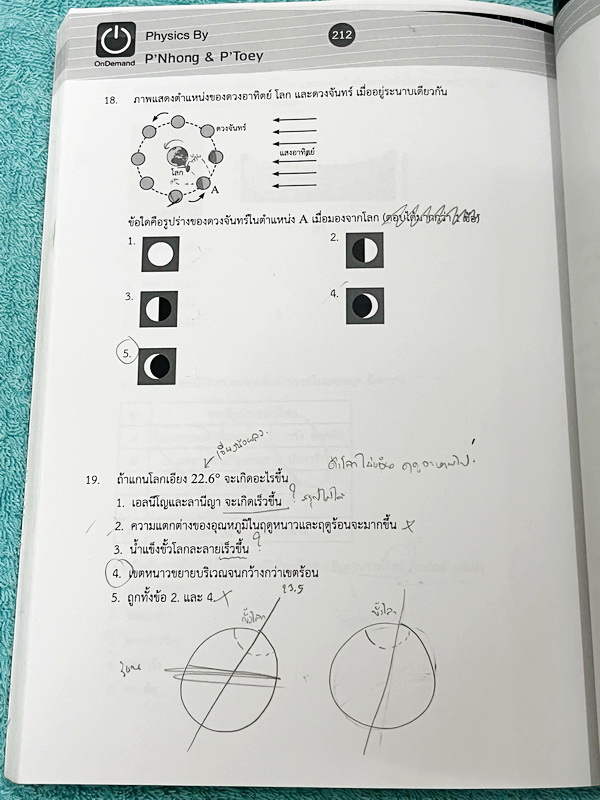 OnDemand
Physics By
P'Nhong & P'Toey
212
18. ภาพแสดงตำแหน่งของดวงอาทิตย์ โลก และดวงจันทร์ เมื่ออยู่ระนาบเดียวกัน
ดวงจันทร์
แสงอาทิตย์
โลก
A
ข้อใดคือรูปร่างของดวงจันทร์ในตำแหน่ง A เมื่อมองจากโลก
1.
2.
3.
4.
5.
19. ถ้าแกนโลกเอียง 22.6° จะเกิดอะไรขึ้น
1. เอลนีโญและลานีญา จะเกิดเร็วขึ้น ?
2. ความแตกต่างของอุณหภูมิในฤดูหนาวและฤดูร้อนจะมากขึ้น
3. น้ำแข็งขั้วโลกละลายเร็วขึ้น ?
4. เขตหนาวขยายบริเวณจนกว้างกว่าเขตร้อน
5. ถูกทั้งข้อ 2. และ 4.
23.5
ขั้วโลก
ขั้วโลก